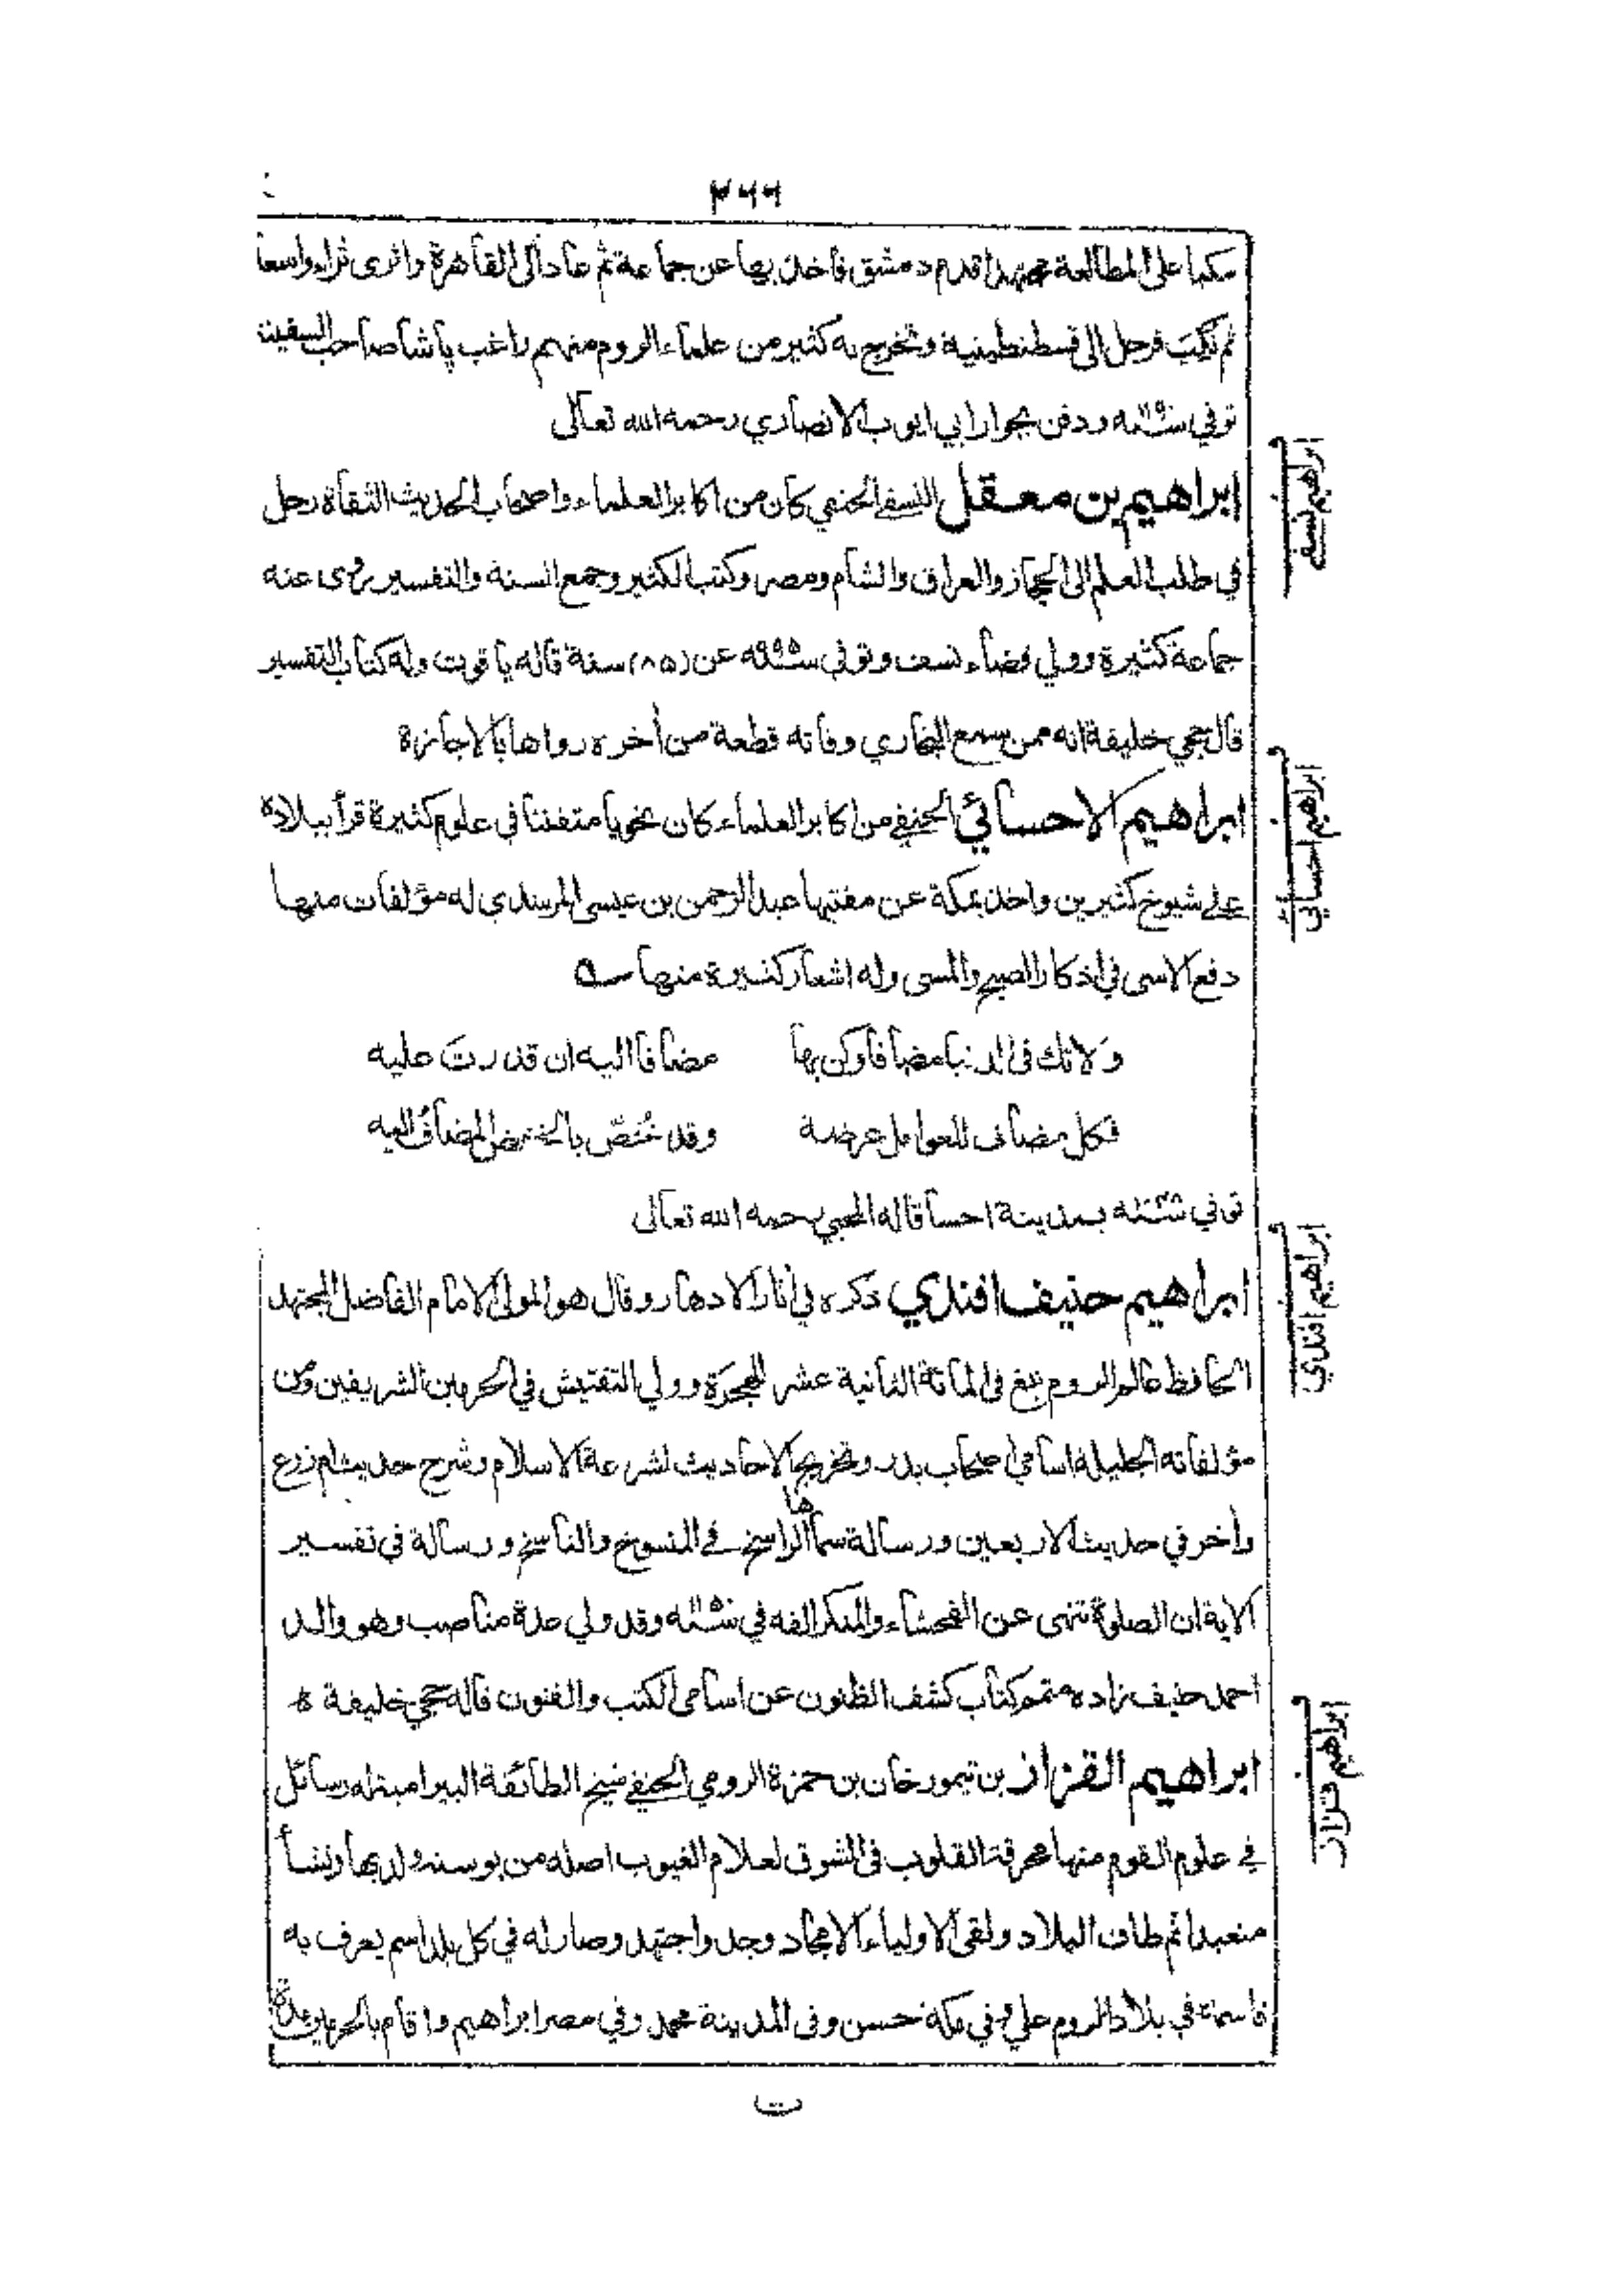 ٣٦٦
مكبا على المطالعة مجتهدا قدم دمشق فاخذ بها عن جماعة ثم عاد الى القاهرة واثرى ثراء واسعا
ثم نكِبَ فرحل الى قسطنطينية وتخرج به كثير من علماء الروم منهم راغب پاشا صاحب السفينة
توفي سنة ودفن بجوار ابي ايوب الانصاري رحمه الله تعالى
ابراهيم بن معقل النسفي الحنفي كان من اكابر العلماء واصحاب الحديث الثقاة رحل
في طلب العلم الى الحجاز والعراق والشام ومصر وكتب الكثير وجمع السنة والتفسير روى عنه
جماعة كثيرة وولي قضاء نسف وتوفي سنة عن (٨٥) سنة قاله ياقوت وله كتاب التفسير
قال حجي خليفة انه ممن سمع البخاري وفاته قطعة من أخره رواها بالاجازة
ابراهيم الاحسائي الحنفي من اكابر العلماء كان نحويا متفننا في علوم كثيرة قرأ ببلاده
على شيوخ كثيرين واخذ بمكة عن مفتيها عبد الرحمن بن عيسى المرشدي له مؤلفات منها
دفع الاسى في اذكار الصبح والمسى وله اشعار كثيرة منها
وَلا تك في الدنيا مضافا وكن بها مضافا اليه ان قدرتَ عليه
فكل مضاف للعوامل عرضة وقد خُصّ بالخفض المضافُ اليه
توفي بمدينة احسا قاله المحبي رحمه الله تعالى
ابراهيم حنيف افندي ذكره في أثار الادهار وقال هو المولى الامام الفاضل المجتهد
الحافظ عالم الروم نبغ في المائة الثانية عشر للهجرة وولي التفتيش في الحرمين الشريفين ومن
مؤلفاته الجليلة اسامي اصحاب بدر وتخريج الاحاديث لشرعة الاسلام وشرح حديث ام زرع
وأخر في حديث الاربعين ورسالة سماها الراسخ في المنسوخ والناسخ ورسالة في تفسير
الاية ان الصلوة تنهى عن الفحشاء والمنكر الفه في سنة وقد ولي عدة مناصب وهو والد
احمد حنيف زاده متمم كتاب كشف الظنون عن اسامى الكتب والفنون قاله حجي خليفة ه
ابراهيم القزاز بن تيمور خان بن حمزة الرومي الحنفي شيخ الطائفة البيرامية له رسائل
في علوم القوم منها محرقة القلوب في الشوق لعلام الغيوب اصله من بوسنه ولد بها ونشأ
متعبدا ثم طاف البلاد ولقى الاولياء الامجاد وجد واجتهد وصار له في كل بلد اسم يعرف به
فاسمه في بلاد الروم علي وفي مكة حسن وفي المدينة محمد وفي مصر ابراهيم واقام بالحرمين عدة
ت
ابراهيم نسفي
ابراهيم احسائي
ابراهيم افندي
ابراهيم قزاز